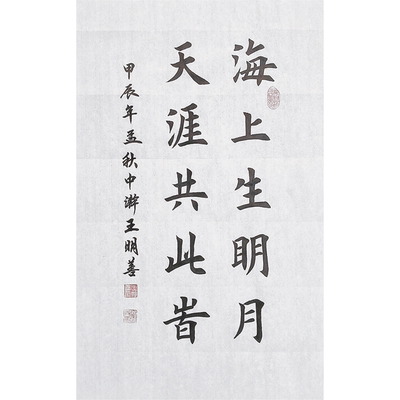 海上生明月
天涯共此旹
甲辰年孟秋中澣王明善